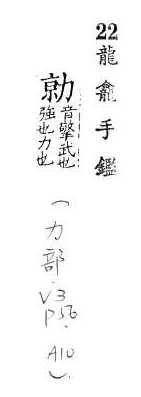 22 龍龕手鑑
勍 音擎武也
強也力也
(力部.V3 P56. A10)